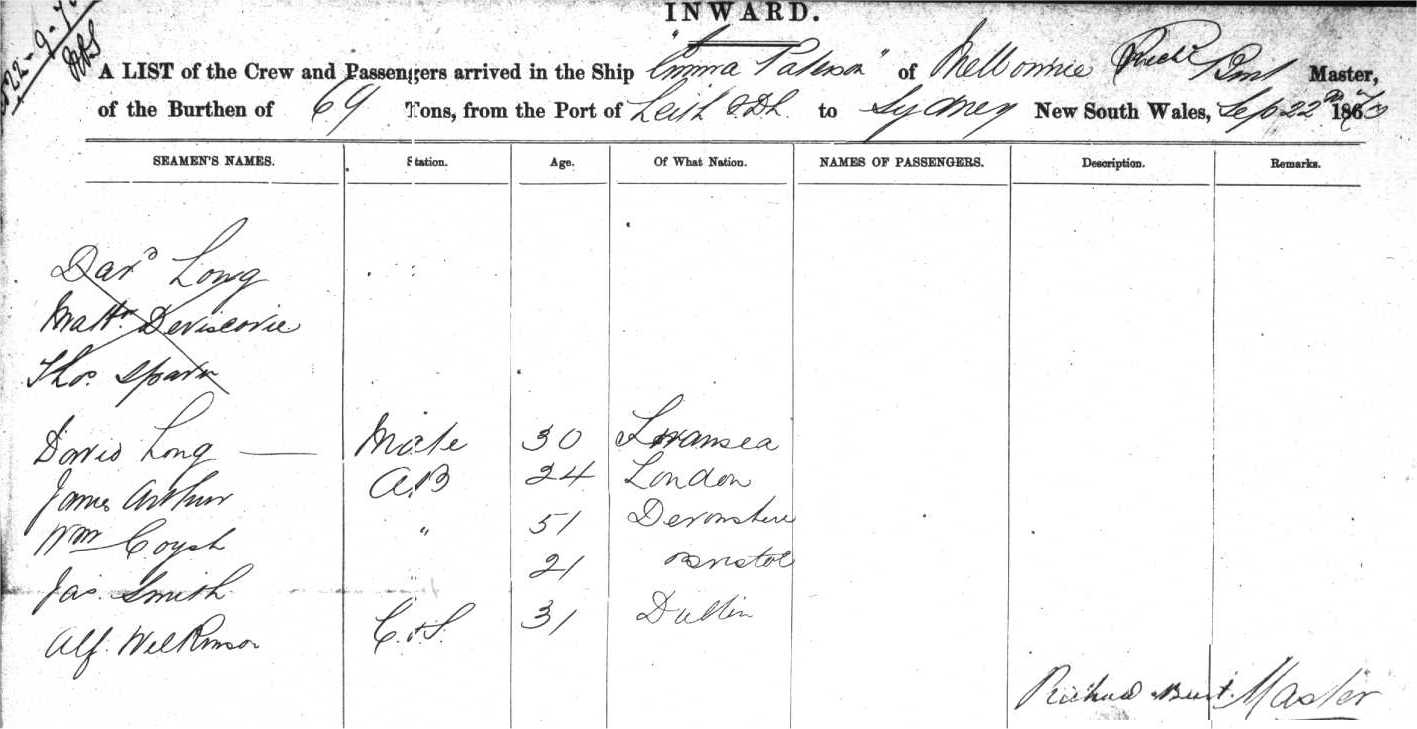 22-9-7
INWARD.
A LIST of the Crew and Passengers arrived in the Ship "Emma Paterson" of Melbourne Richd Burt Master,
of the Burthen of 69 Tons, from the Port of Leith &Dh to Sydney New South Wales, Sep 22 187
SEAMEN'S NAMES. Station. Age. Of What Nation. NAMES OF PASSENGERS. Description. Remarks.
Davd Long
Mattw Deviscovie
Thos Spark
David Long Mate 30 Swansea
James Arthur A.B 24 London
Wm Coysh " 51 Devonshire
Jas. Smith 21 Bristol
Alf Wilkinson C.&S. 31 Dublin
Richard Burt Master